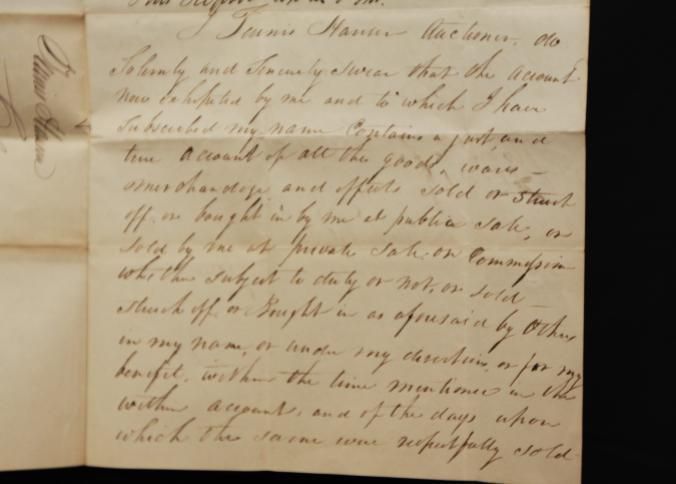 I Teunis Hauser Auctioneer, do
Solemnly and Sincerely swear that the account
now exhibited by me and to which I have
subscribed my name Contains a just, and
true account of all the goods, wares –
merchandize and effects sold or struck
off, or bought in by me at public sale, or
sold by me at private sale on Commission
whether subject to duty or not, or sold
struck off or Bought in as aforesaid by others
in my name, or under my direction, or for my
benefit, within the time mentioned in the
within account, and of the days upon
which the same were respectfully sold